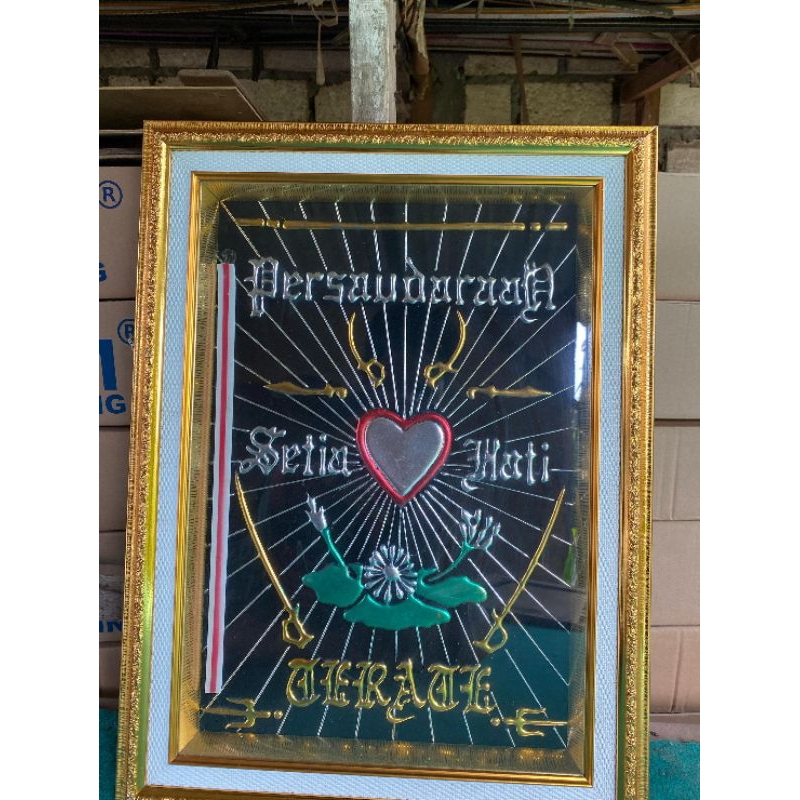 Persaudaraan
Setia Hati
TERATE